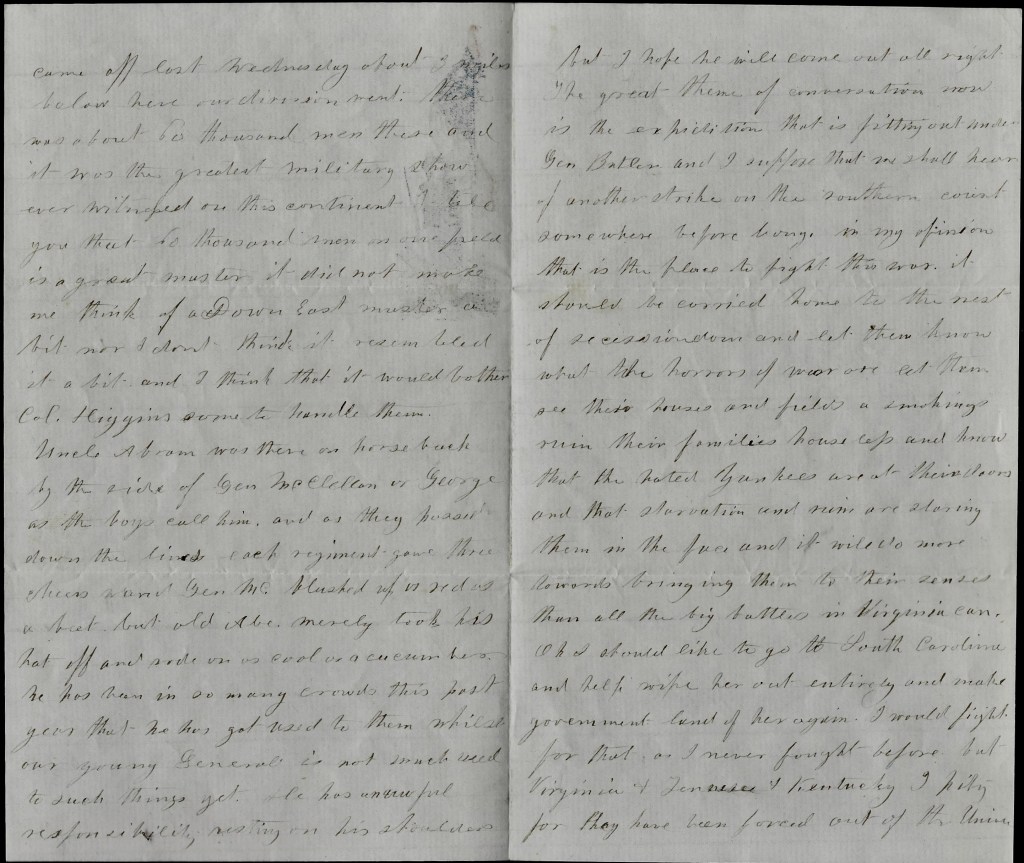 came off last Wednesday about 3 miles
below here our division went. there
was about 60 thousand men there and
it was the greatest military show
ever witnessed on this continent I tell
you that 60 thousand men in one field
is a great muster it did not make
me think of a Down East muster a
bit nor I dont think it resembled
it a bit and I think that it would bother
Col. Higgins some to handle them.
Uncle Abram was there on horse back
by the side of Gen McClellan or George
as the boys call him. and as they passed
down the lines each regiment gave three
cheers and Gen Mc. blushed up as red as
a beet. but old Abe. merely took his
hat off and rode on as cool as a cucumber.
he has ben in so many crowds this past
year that he has got used to them whilst
our young General is not much used
to such things yet. He has an awful
responsibility resting on his shoulders
but I hope he will come out all right
The great theme of conversation now
is the expidition that is fitting out under
Gen Butler and I suppose that we shall hear
of another strike on the southern coast
somewhere before long. in my opinion
that is the place to fight this war. it
should be carried home to the nest
of secessiondom and let them know
what the horrors of war are let them
see their houses and fields a smoking
ruin their families houseless and know
that the hated Yankees are at their doors
and that starvation and ruin are staring
them in the face and it will do more
towards bringing them to their senses
than all the big battles in Virginia can.
Oh I should like to go to South Carolina
and help wipe her out entirely and make
government land of her again. I would fight
for that as I never fought before. but
Virginia & Tennessee & Kentucky I pity
for they have been forced out of the Union